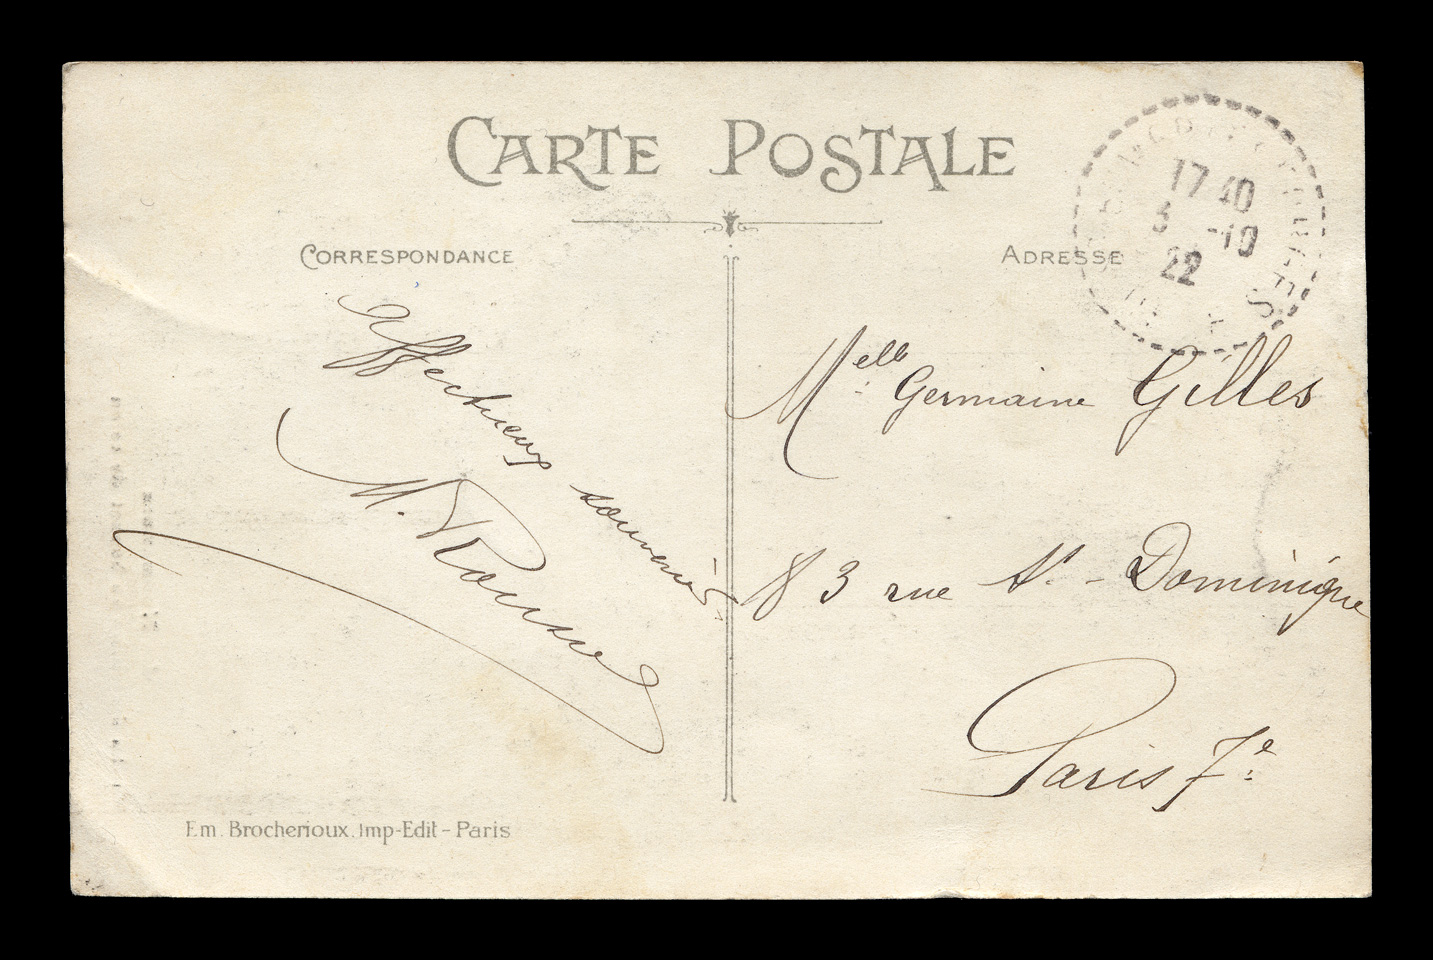 CARTE POSTALE
CORRESPONDANCE
ADRESSE
17 40
5 -10
22
Affectueux souvenirs.
M.
Melle Germaine Gilles
83 rue St - Dominique
Paris 7e
Em. Brocherioux. Imp-Edit - Paris